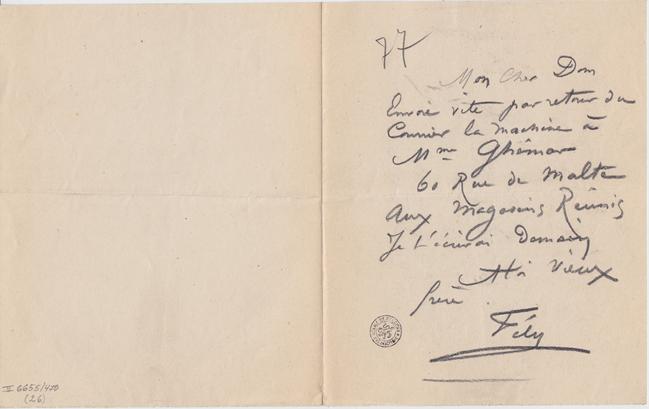 77
Mon Cher Dom
Envoie vite par retour du
Courrier la machine à
Mme Ghémar
60 Rue de Malte
Aux Magasins Réunis
Je t'écrirai Demain
vieux
frère.
Fély
II 6655/470
(26)